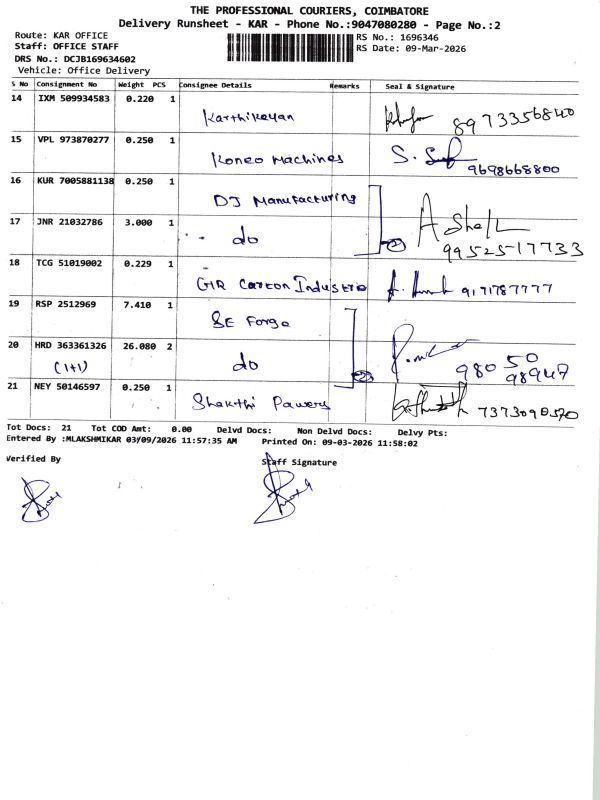 THE PROFESSIONAL COURIERS, COIMBATORE
Delivery Runsheet - KAR - Phone No.:9047080280 - Page No.:2
Route: KAR OFFICE
Staff: OFFICE STAFF
DRS No.: DCJB169634602
Vehicle: Office Delivery
RS No.: 1696346
RS Date: 09-Mar-2026
S No Consignment No Weight PCS Consignee Details Remarks Seal & Signature
14 IXM 509934583 0.220 1 Karthikeyan 8973356840
15 VPL 973870277 0.250 1 Koneo Machines 9698668800
16 KUR 7005881138 0.250 1 DJ Manufacturing
17 JNR 21032786 3.000 1 do 2 99525-17733
18 TCG 51019002 0.229 1 GIR Carton Industrie 9171787777
19 RSP 2512969 7.410 1 SE Forge
20 HRD 363361326 26.080 2 do 980 50
(1+1) 98947
21 NEY 50146597 0.250 1 Shakthi Pawers 7373090570
Tot Docs: 21 Tot COD Amt: 0.00 Delvd Docs: Non Delvd Docs: Delvy Pts:
Entered By :MLAKSHMIKAR 03/09/2026 11:57:35 AM Printed On: 09-03-2026 11:58:02
Verified By Staff Signature